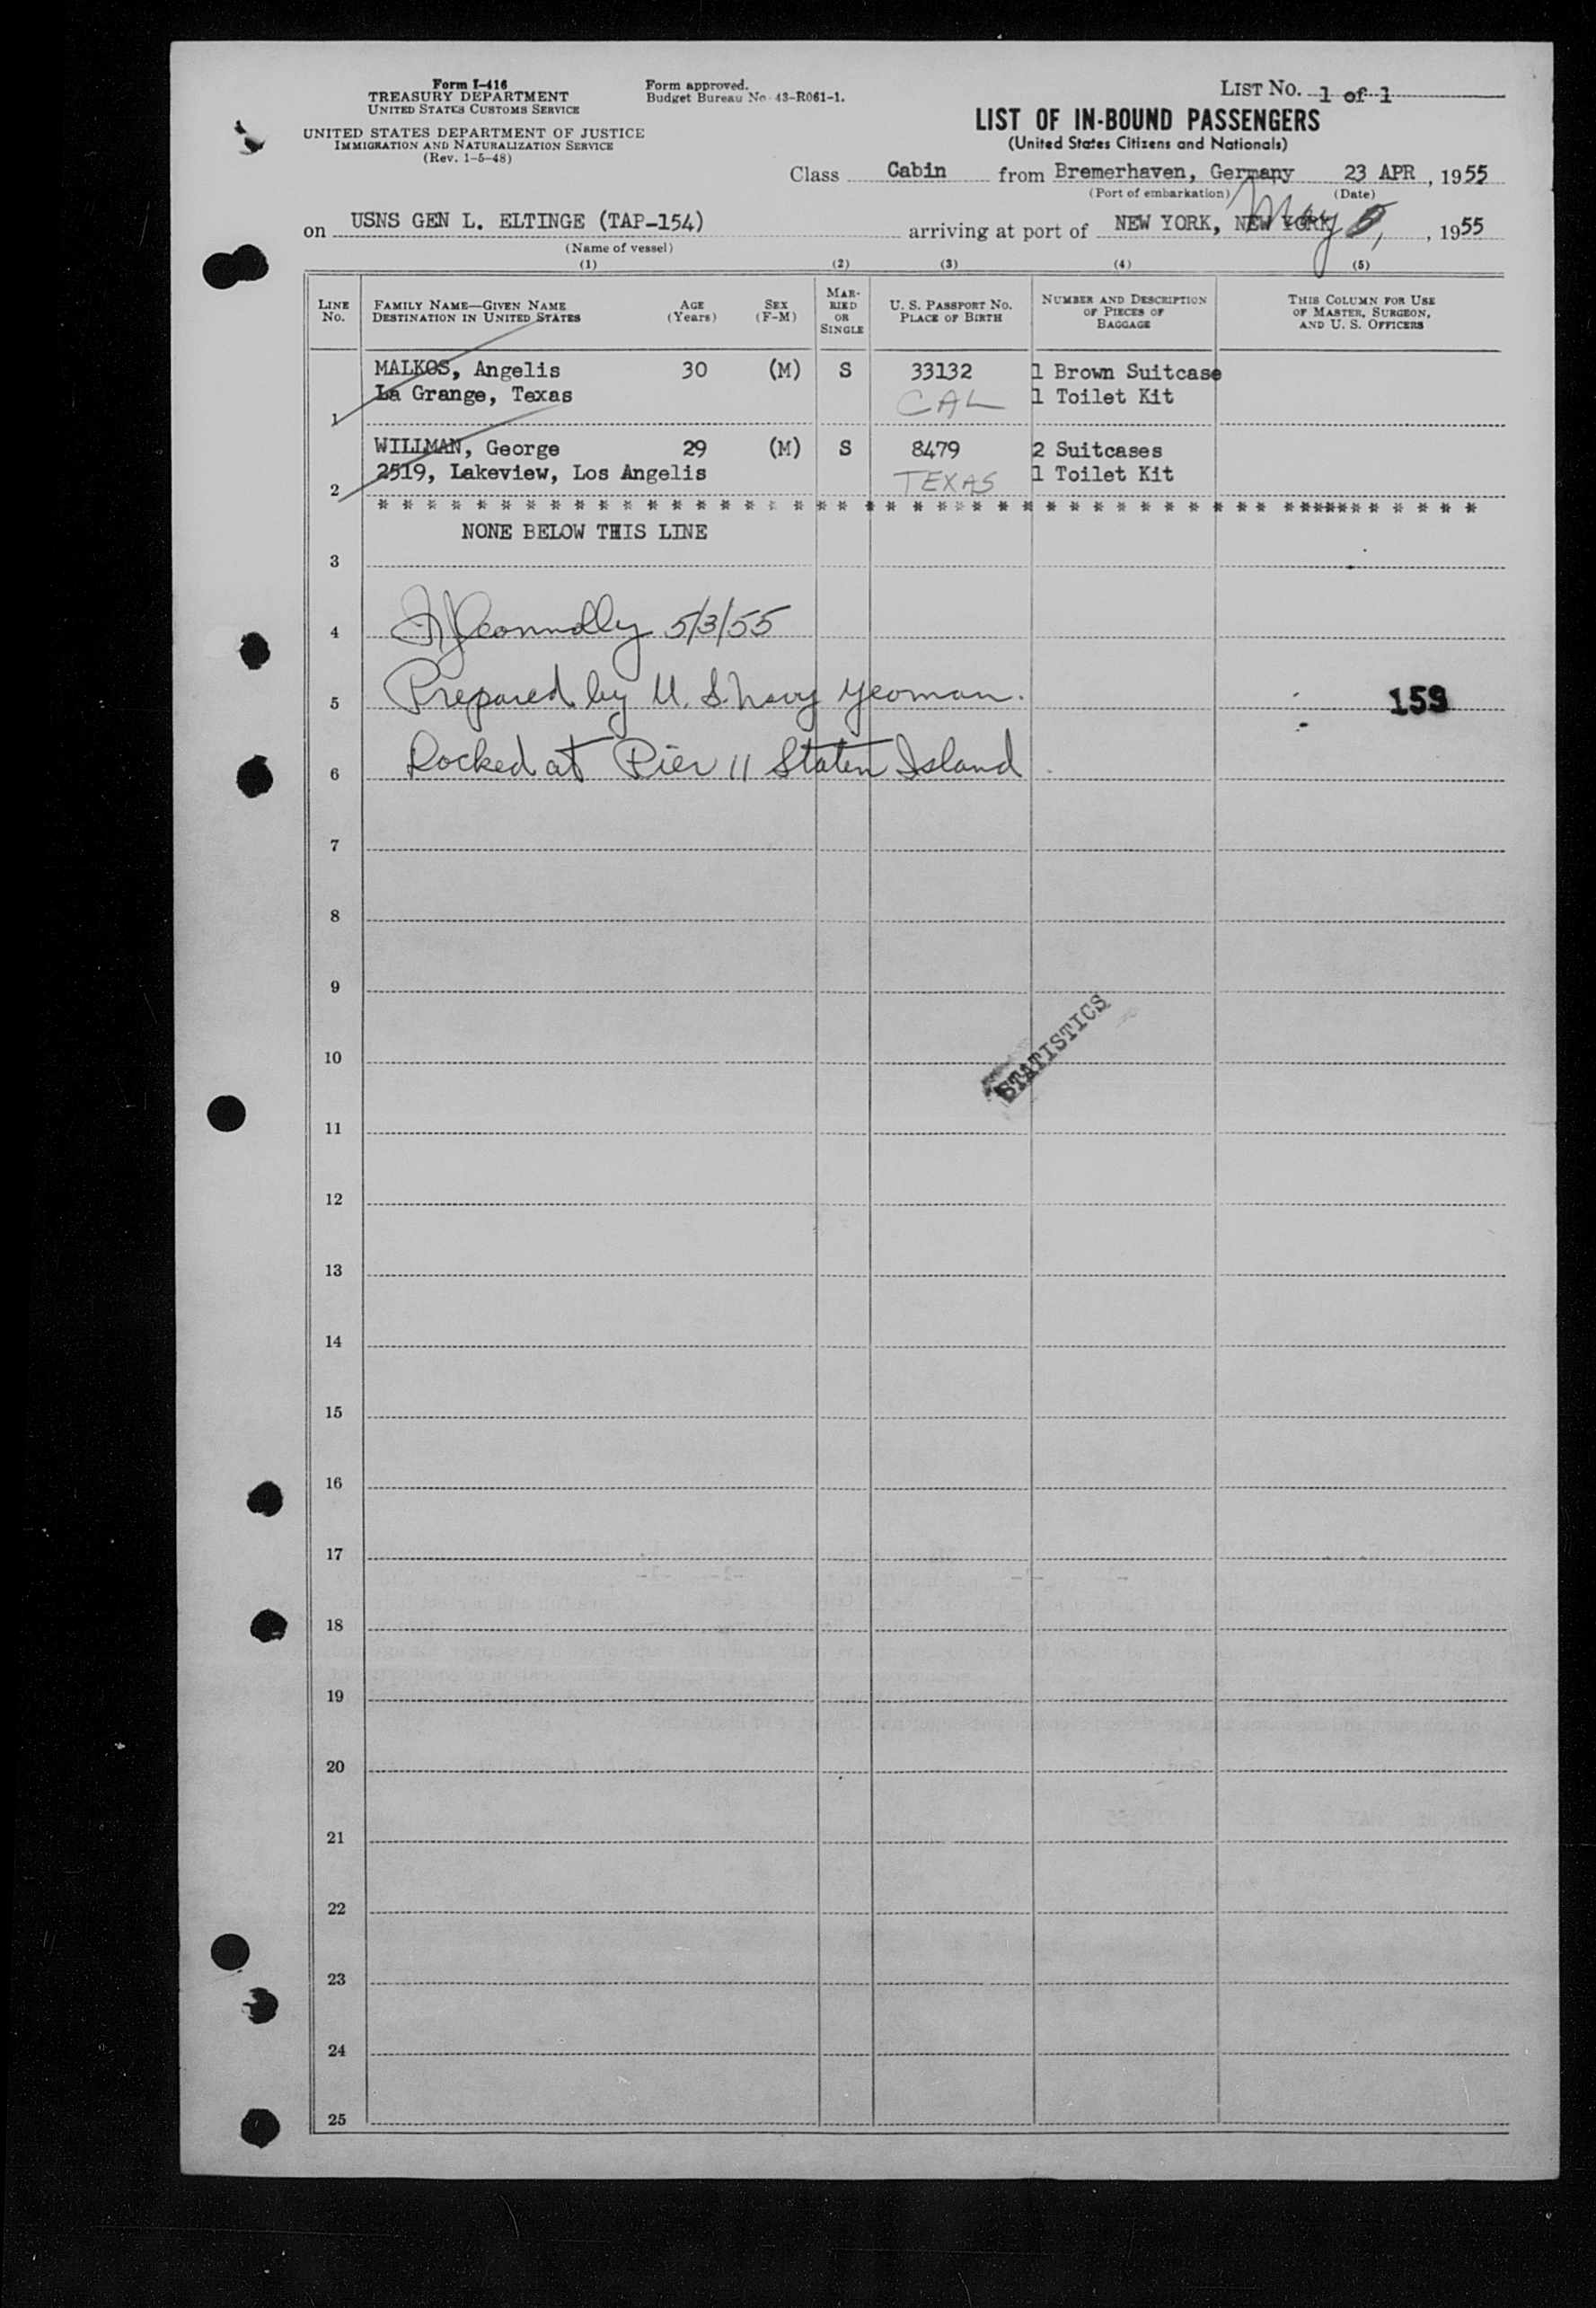 Form I-416
TREASURY DEPARTMENT
UNITED STATES CUSTOMS SERVICE
UNITED STATES DEPARTMENT OF JUSTICE
IMMIGRATION AND NATURALIZATION SERVICE
(Rev. 1-5-48)
Form approved.
Budget Bureau No. 43-R061-1.
LIST No. 1 of 1
LIST OF IN-BOUND PASSENGERS
(United States Citizens and Nationals)
Class Cabin from Bremerhaven, Germany 23 APR, 1955
(Port of embarkation) (Date)
on USNS GEN L. ELTINGE (TAP-154) arriving at port of NEW YORK, NEW YORK May, 1955
(Name of vessel)
(1) (2) (3) (4) (5)
LINE No.
FAMILY NAME—GIVEN NAME
DESTINATION IN UNITED STATES
AGE (Years)
SEX (F-M)
MARRIED OR SINGLE
U. S. PASSPORT No.
PLACE OF BIRTH
NUMBER AND DESCRIPTION OF PIECES OF BAGGAGE
THIS COLUMN FOR USE OF MASTER, SURGEON, AND U. S. OFFICERS
MALKOS, Angelis 30 (M) S 33132 1 Brown Suitcase
La Grange, Texas CAL 1 Toilet Kit
1
WILLMAN, George 29 (M) S 8479 2 Suitcases
2519, Lakeview, Los Angelis TEXAS 1 Toilet Kit
2
* * * * * * * * * * * * * * * * * * * * * * * * * * * * * * * * * * * * * * * * * * * * * * * * * *
NONE BELOW THIS LINE
3
4 Connolly 5/3/55
5 Prepared by U. S. Navy Yeoman. 159
6 Docked at Pier 11 Staten Island
7
8
9
STATISTICS
10
11
12
13
14
15
16
17
18
19
20
21
22
23
24
25